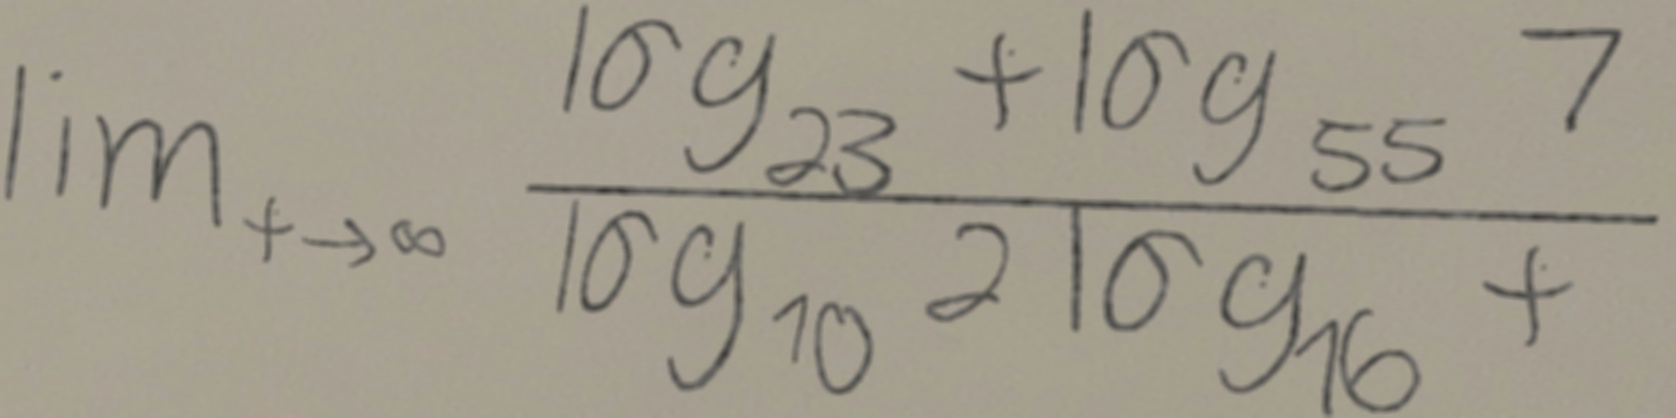 \lim_{t \to \infty} \frac{\log_{23} t \log_{55} 7}{\log_{10} 2 \log_{16} t}